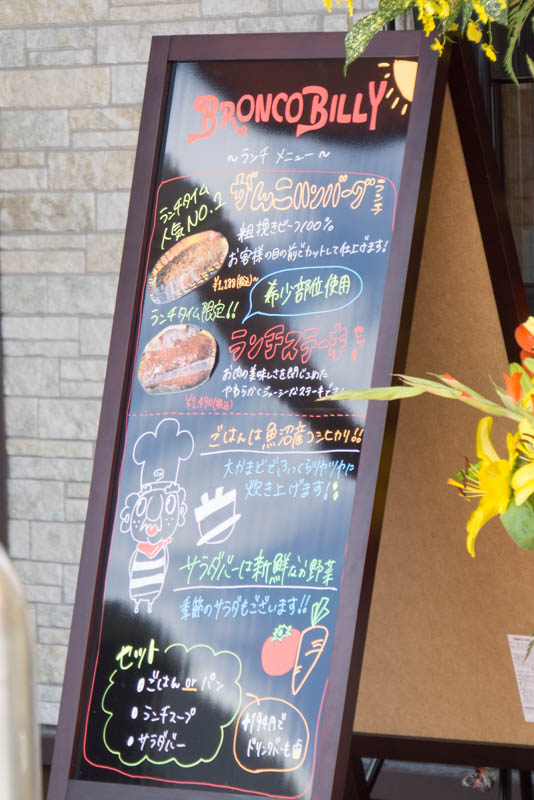 BRONCO BILLY
～ランチ メニュー～
ランチタイム
人気NO.1
げんこつハンバーグ
ランチ
粗挽きビーフ100%
お客様の目の前でカットして仕上げます!
¥1,188(税込)~
ランチタイム限定!!
希少部位使用
ランチステーキ
お肉の美味しさを閉じこめた
やわらかくジューシーなステーキです
¥1,490(税込)
ごはんは魚沼産コシヒカリ!!
大かまどでふっくらツヤツヤに
炊き上げます!!
サラダバーは新鮮なお野菜
季節のサラダもございます!!
セット
●ごはん or パン
●ランチスープ
●サラダバー
+194円で
ドリンクバーも